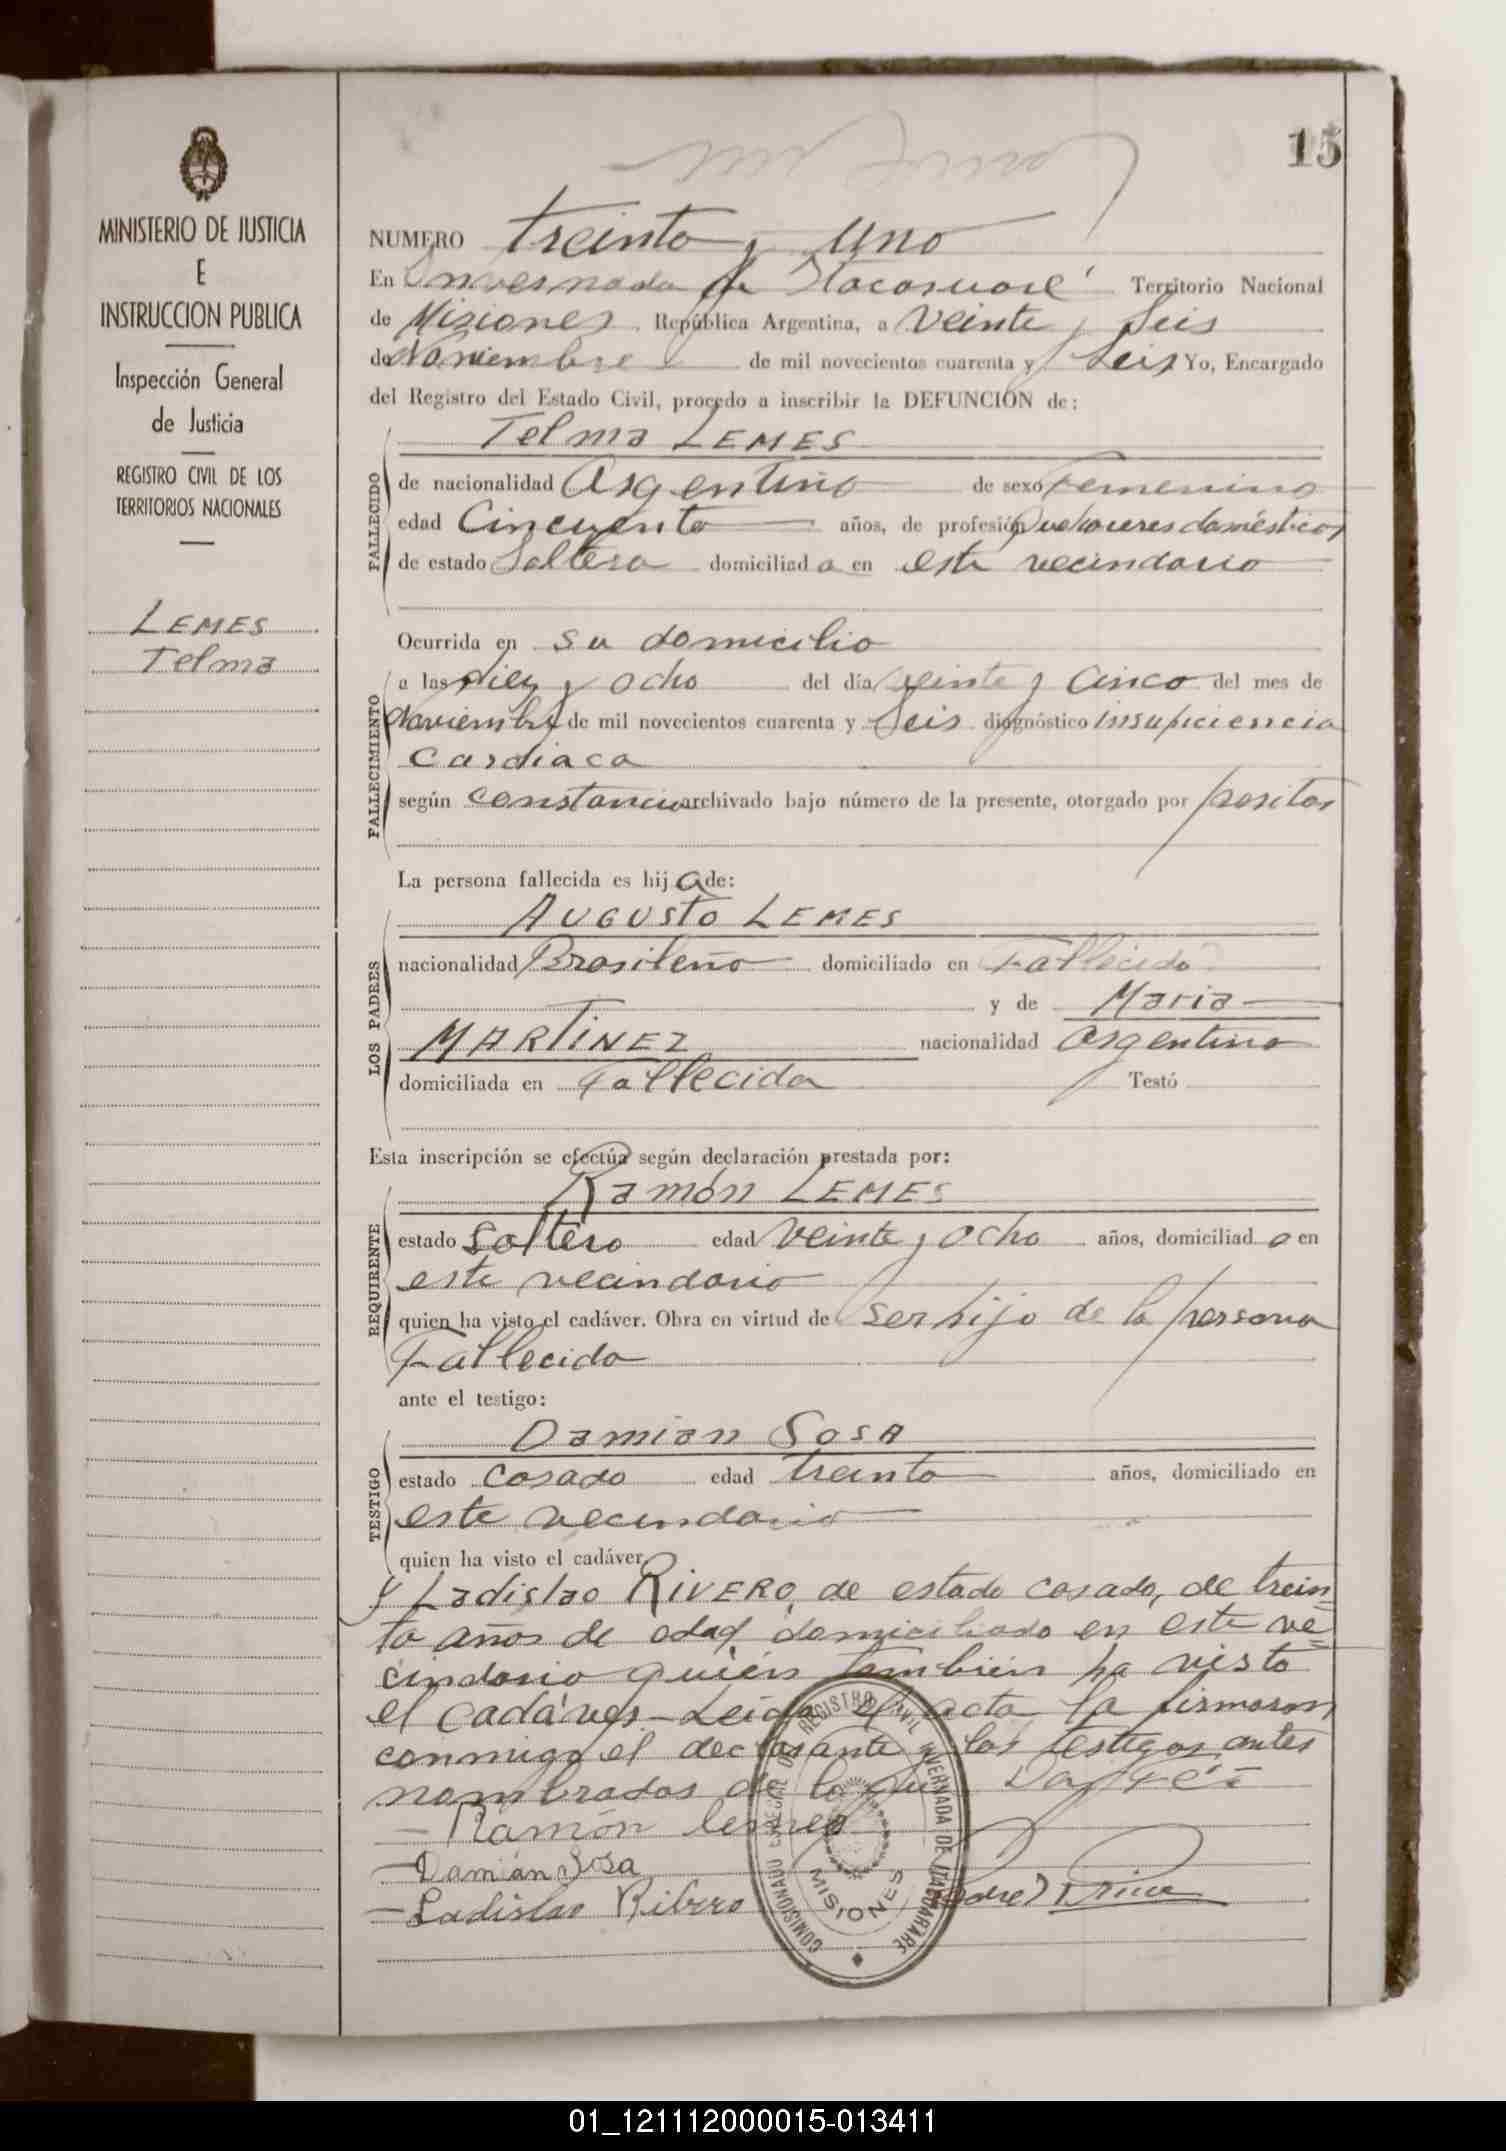 15
MINISTERIO DE JUSTICIA
E
INSTRUCCION PUBLICA
Inspección General
de Justicia
REGISTRO CIVIL DE LOS
TERRITORIOS NACIONALES
LEMES
Telma
NUMERO treinta y uno
En Invernada de Itacaruaré Territorio Nacional
de Misiones República Argentina, a veinte y Seis
de Noviembre de mil novecientos cuarenta y Seis Yo, Encargado
del Registro del Estado Civil, procedo a inscribir la DEFUNCIÓN de:
Telma LEMES
FALLECIDO
de nacionalidad Argentina de sexo Femenino
edad Cincuenta años, de profesión Quehaceres domésticos
de estado Soltera domiciliad a en este vecindario
Ocurrida en su domicilio
FALLECIMIENTO
a las diez y ocho del día veinte y cinco del mes de
Noviembre de mil novecientos cuarenta y Seis diagnóstico insuficiencia
cardiaca
según constancia archivado bajo número de la presente, otorgado por peritos
La persona fallecida es hij a de:
LOS PADRES
AUGUSTO LEMES
nacionalidad Brasileño domiciliado en Fallecido
y de Maria
MARTINEZ nacionalidad argentina
domiciliada en Fallecida Testó
Esta inscripción se efectúa según declaración prestada por:
REQUIRENTE
Ramón LEMES
estado Soltero edad veinte y ocho años, domiciliad o en
este vecindario
quien ha visto el cadáver. Obra en virtud de ser hijo de la persona
Fallecida
ante el testigo:
TESTIGO
Damian SOSA
estado casado edad treinta años, domiciliado en
este vecindario
quien ha visto el cadáver.
y Ladislao RIVERO, de estado casado, de trein-
ta años de edad domiciliado en este ve-
cindario quién tambien ha visto
el cadáver.- Leída el acta la firmaron
conmigo el declarante y los testigos antes
nombrados de lo que Doy Fé
- Ramón lemes
- Damián Sosa
- Ladislao Ribero
COMISIONADO ESPECIAL DE REGISTRO CIVIL INVERNADA DE ITACARUARE
MISIONES
01_121112000015-013411